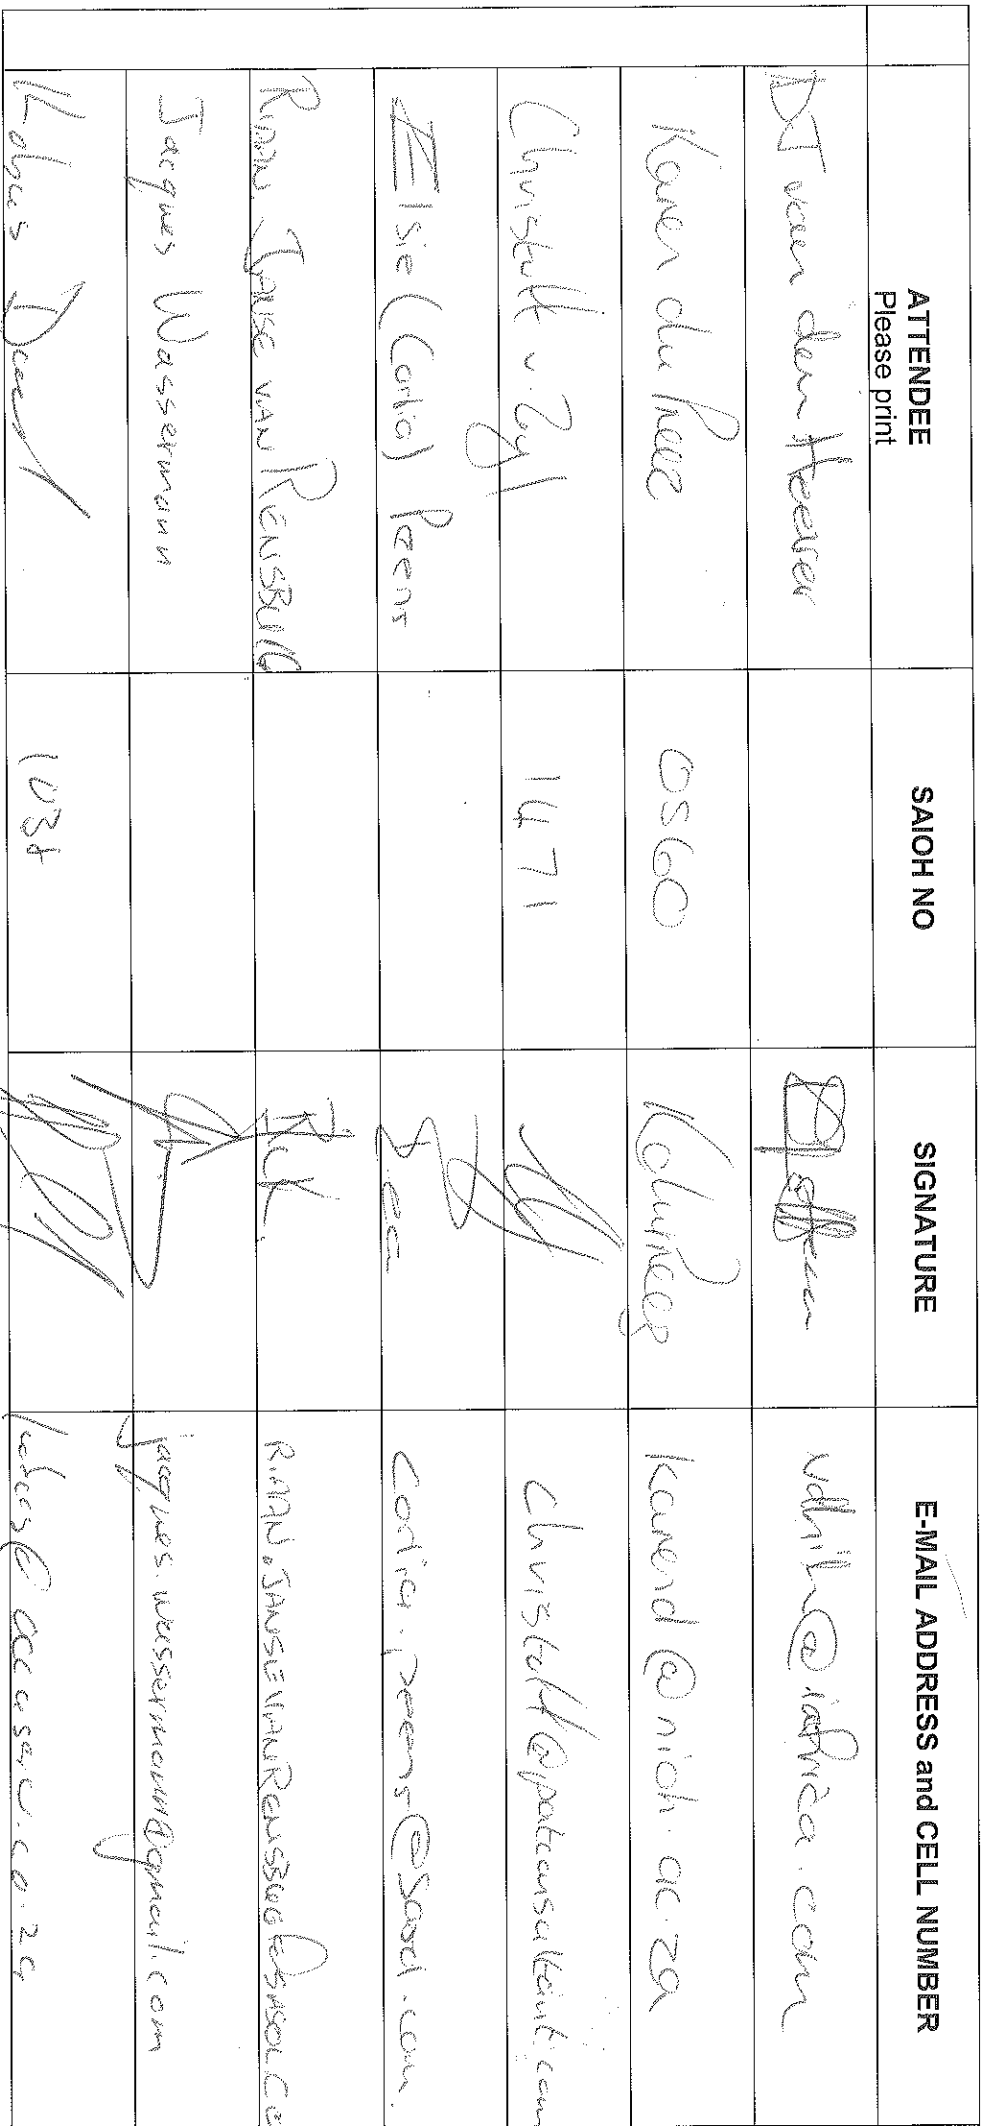 ATTENDEE SAIOH NO SIGNATURE E-MAIL ADDRESS and CELL NUMBER
Please print
DJ van den Heever vdhih@iafrica.com
Karen du Preez 0560 KduPreez karend@nioh.ac.za
Christoff v. Zyl 1471 christoff@patconsultant.com
Elsie (Corlia) Peens corlia.peens@sasol.com.
RIAAN JANSE VAN RENSBURG RIAAN.JANSEVANRENSBURG@SASOL.CO
Jacques Wassermann jacques.wassermann@gmail.com
Kobus 1038 kobus@